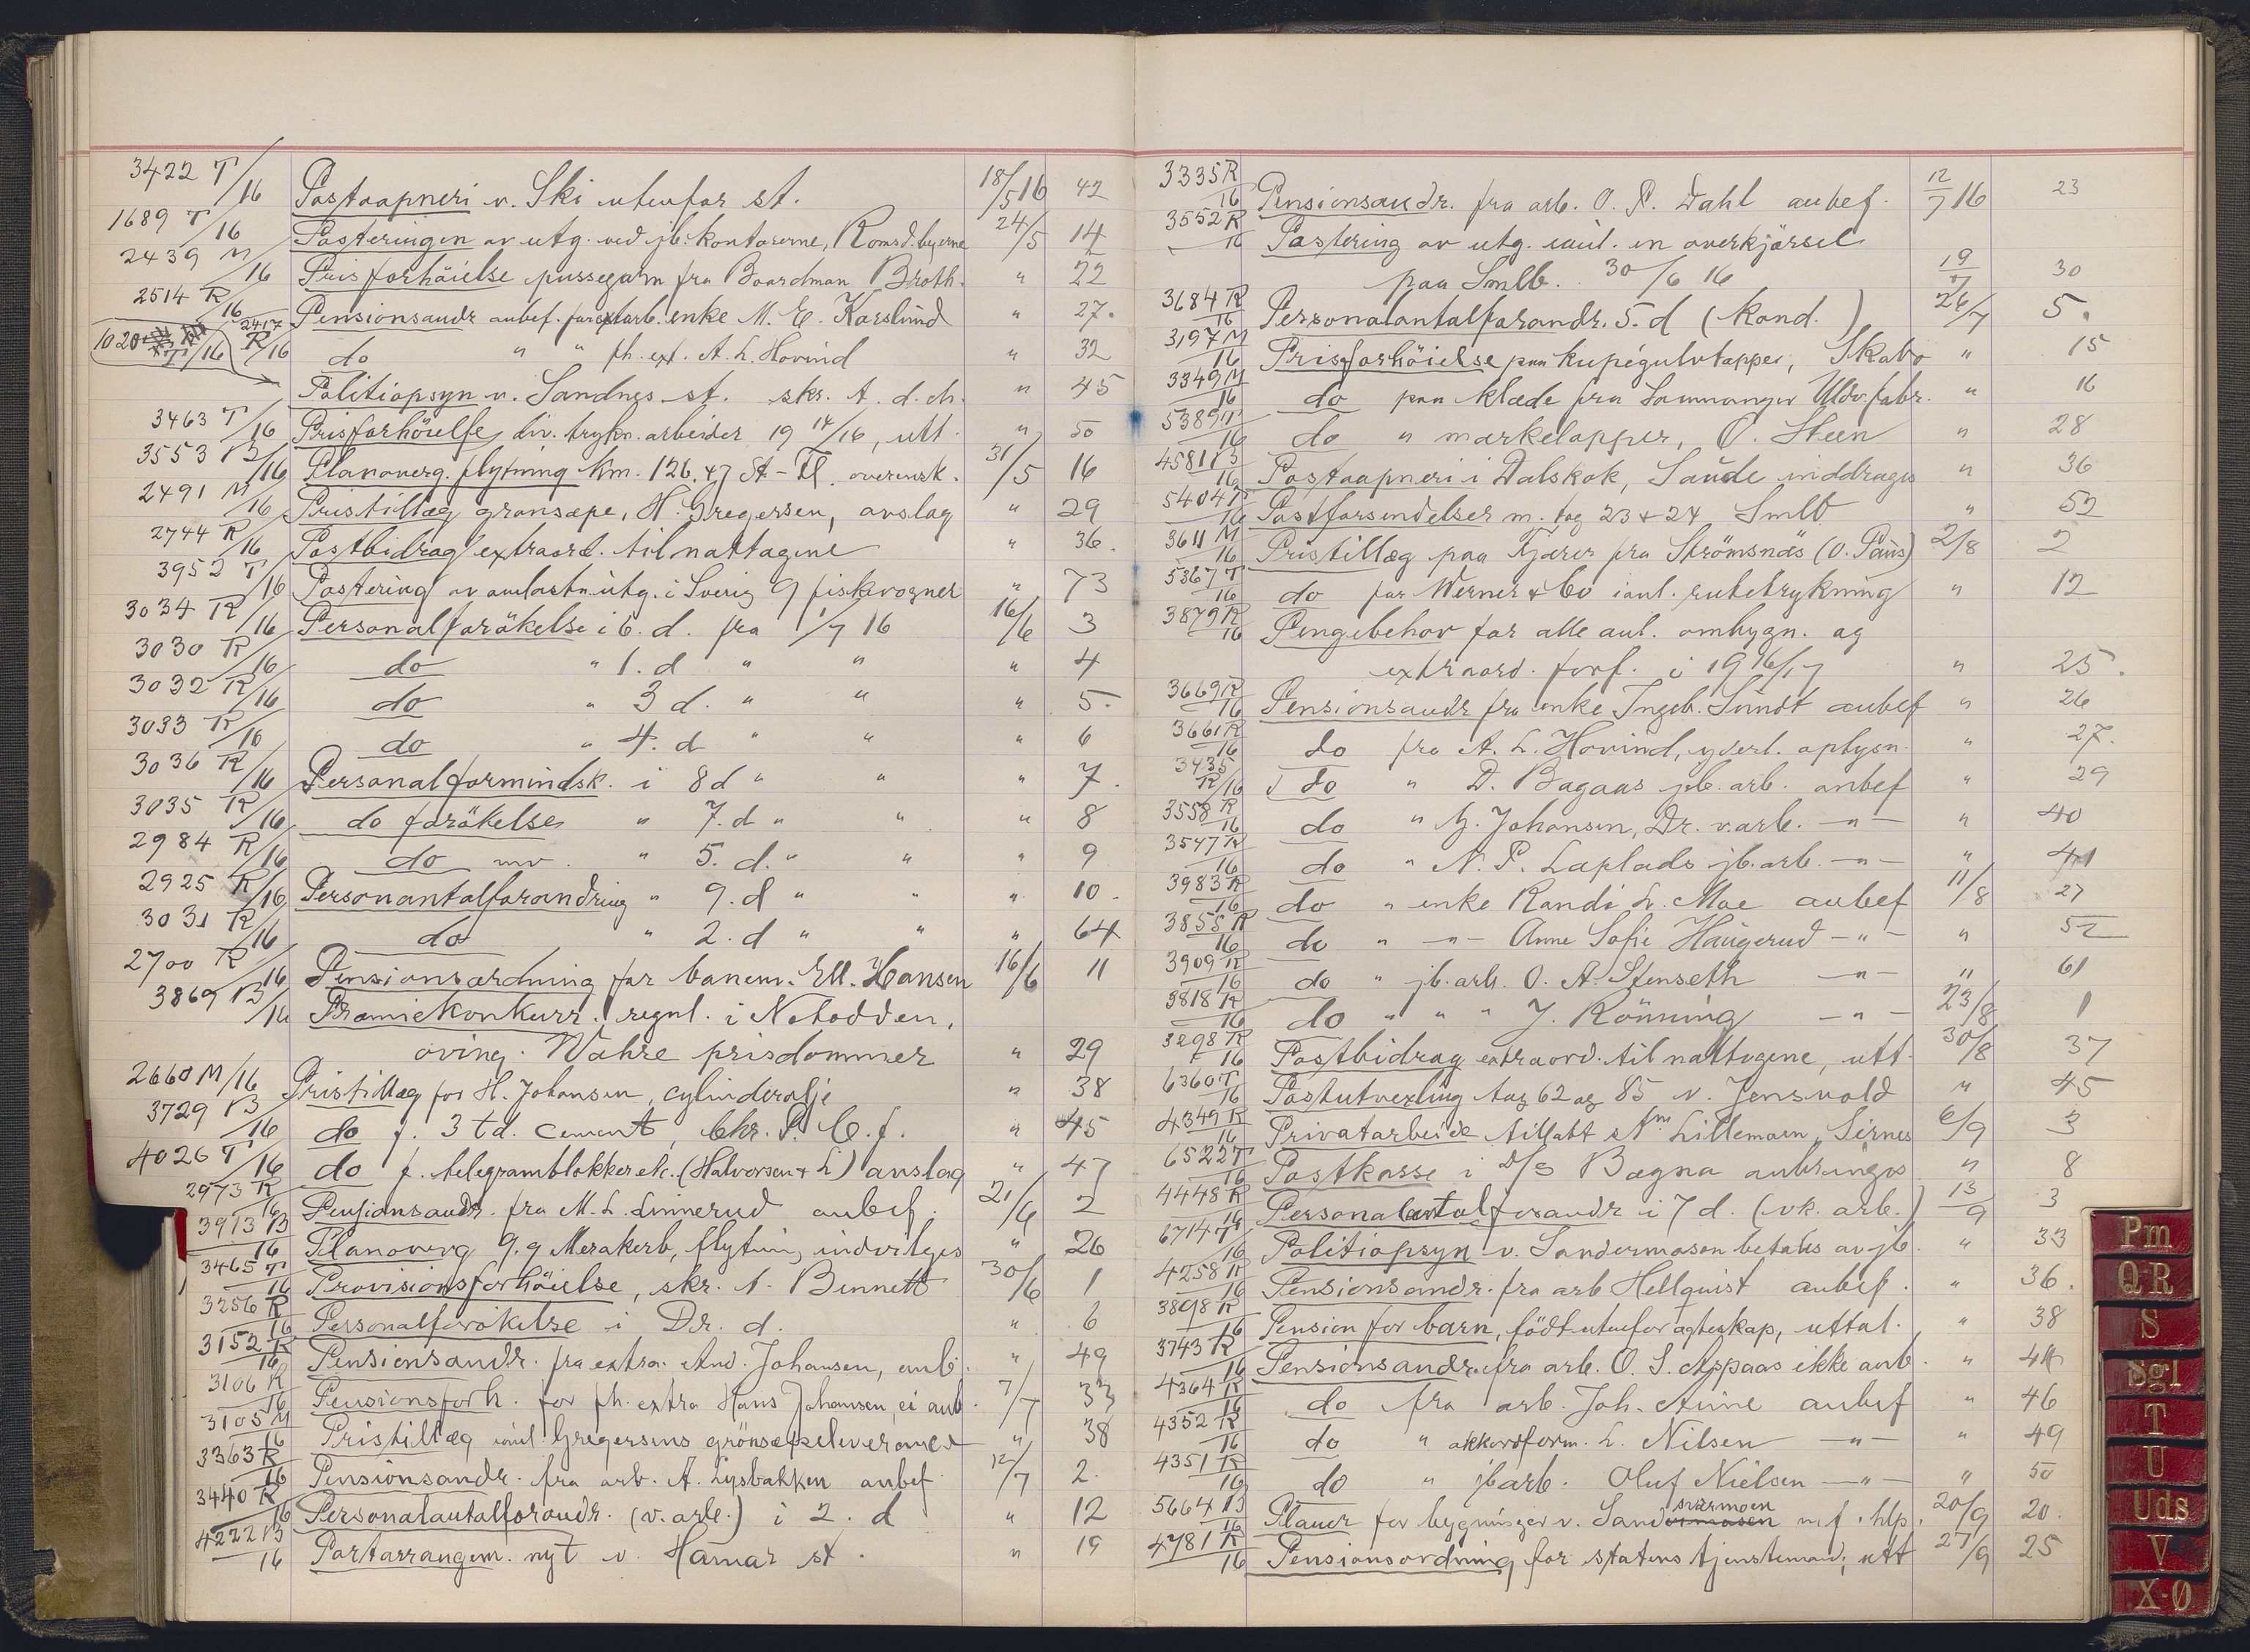 3422 T/16 Postaapneri v. Ski utenfor st. 18/5 16 42
1689 T/16 Posteringen av utg. ved jb. kontorerne, Romsd.byerne 24/5 14
2439 M/16 Prisforhöielse pussegarn fra Boardman Broth. " 22
2514 R/16 Pensionsandr anbef. for extarb. enke M. E. Karslund " 27.
2417 R/16 do " " fh. ext. A. L. Hovind " 32
1020 T/16 Politiopsyn v. Sandnes st. skr. t. d. ch. " 45
3463 T/16 Prisforhöielse, div. trykn. arbeider 19 14/16, utt. " 50
3553 B/16 Planoverg. flytning km. 126.47 St-El. overensk. 31/5 16
2491 M/16 Pristillæg grønsæpe, H. Gregersen, avslag " 29
2744 R/16 Postbidrag extraord. til nattogene " 36.
3952 T/16 Postering av omlastn. utg. i Sverig 9 fiskevogner " 73
3034 R/16 Personalforökelse i 6. d. fra 1/7 16 16/6 3
3030 R/16 do " 1. d " " " 4
3032 R/16 do " 3 d. " " " 5.
3033 R/16 do " 4. d " " " 6
3036 R/16 Personalformindsk. i 8 d " " " 7.
3035 R/16 do forökelse " 7. d " " " 8
2984 R/16 do " 5. d. " " " 9
2925 R/16 Personantalforandring " 9. d " " " 10.
3031 R/16 do " 2. d " " " 64
2700 R/16 Pensionsordning for banem. Ell. Hansen 16/6 11
3869 B/16 Præmiekonkurr. regul. i Notodden,
oving. Wahre prisdommer " 29
2660 M/16 Pristillæg for H. Johansen, cylinderolje " 38
3729 B/16 do f. 3 td. cement, Chr. P. C. f. " 45
4026 T/16 do f. telegramblokker etc. (Halvorsen & L) avslag " 47
2973 R/16 Pensionsandr. fra M. L. Linnerud anbef. 21/6 2
3913 B/16 Planoverg 9.9 Merakerb, flytning, indvilges " 26
3465 T/16 Provisionsforhöielse, skr. t. Bennett 30/6 1
3256 R/16 Personalforökelse i Dr. d. " 6
3152 R/16 Pensionsandr. fra extra. And. Johansen, anb. " 49
3106 R/16 Pensionsforh. for fh. extra Hans Johansen, ei anb. 7/7 33
3105 M/16 Pristillæg iaul Gregersens grönsæpeleveranse " 38
3363 R/16 Pensionsandr. fra arb. A. Lysbakken anbef. 12/7 2.
3440 R/16 Personalantalforandr. (v. arb.) i 2. d " 12
4222 B/16 Portarrangem. nyt v. Hamar st. " 19
3335 R/16 Pensionsandr. fra arb. O. P. Dahl anbef. 12/7 16 23
3552 R/16 Postering av utg. iaul. en overkjörsel
paa Smlb. 30/6 16 19/7 30
3684 R/16 Personalantalforandr. 5. d (Kond.) 26/7 5.
3197 M/16 Prisforhöielse paa kupégulvtepper, Skabo " 15
3349 M/16 do paa klæde fra Samnanger Uldv.fabr. " 16
5389 T/16 do " merkelapper, O. Steen " 28
4581 B/16 Postaapneri i Dalskok, Saude inddrages " 36
5404 T/16 Postforsendelser m. tog 23 & 24 Smlb " 52
3611 M/16 Pristillæg paa Fjærer fra Strömsnäs (O. Paus) 2/8 2
5367 T/16 do for Werner & Co iaul. rutetrykning " 12
3879 R/16 Pengebehov for alle anl. ombygn. og
extraord. forf. i 19 16/17 " 25.
3669 R/16 Pensionsandr fra enke Ingeb. Sundt anbef " 26
3661 R/16 do fra A. L. Hovind, yderl. oplysn. " 27.
3435 R/16 do " D. Bagaas jb. arb. anbef " 29
3558 R/16 do " G. Johansen, Dr. v. arb. —"— " 40
3547 R/16 do " N. P. Laplads jb. arb. —"— " 41
3983 R/16 do " enke Randi L. Moe anbef 11/8 27
3855 R/16 do " —"— Anne Sofie Haugerud —"— " 52
3909 R/16 do " jb. arb. O. A. Stenseth —"— " 61
3818 R/16 do " " " J. Rönning —"— 23/8 1
3298 R/16 Postbidrag extraord. til nattogene, utt. 30/8 37
6360 T/16 Postutvexling tog 62 og 85 v. Jensvold " 45
4349 R/16 Privatarbeide tillatt stm Lillemoen, Sirnes 6/9 3
6522 T/16 Postkasse i D/S Bægna anbringes " 8
4448 R/16 Personalantalforandr i 7 d. (vk. arb.) 13/9 3
6714 T/16 Politiopsyn v. Sandermosen betales av jb. " 33
4258 R/16 Pensionsandr. fra arb Hellquist anbef. " 36.
3898 R/16 Pension for barn, födt utenfor ægteskap, uttal. " 38
3743 R/16 Pensionsandr. fra arb. O. S. Aspaas ikke anb. " 44
4364 R/16 do fra arb. Joh. Aune anbef " 46
4352 R/16 do " akkordform. L. Nilsen —"— " 49
4351 R/16 do " jb arb. Oluf Nielsen —"— " 50
5664 B/16 Planer for bygninger v. Sandermosen svermoen m. f. hlp. 20/9 20.
4781 R/16 Pensionsordning for statens tjenstemænd, utt 27/9 25
Pm
Q-R
S
Sgl
T
U
Uds
V
X-Ø